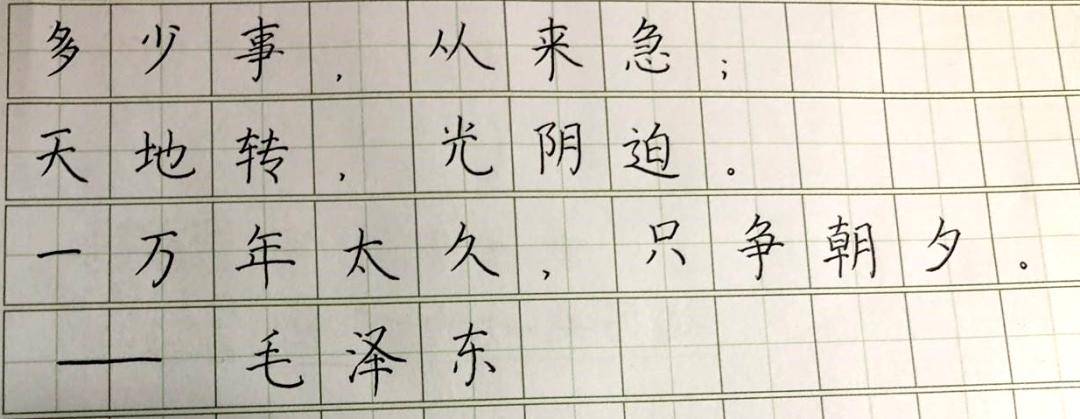 多少事，从来急；
天地转，光阴迫。
一万年太久，只争朝夕。
——毛泽东